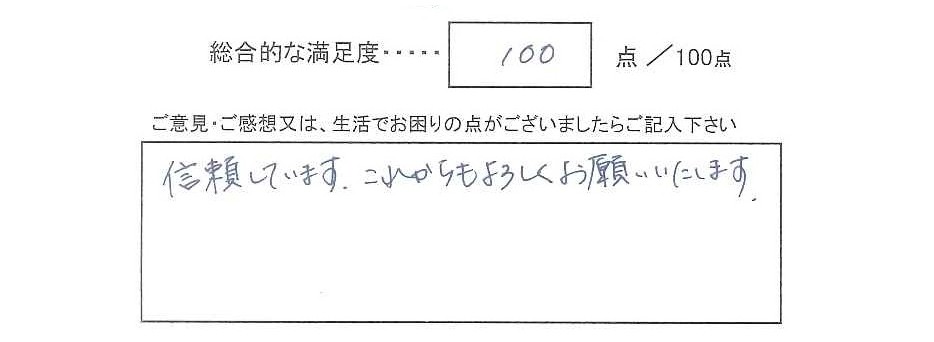 総合的な満足度・・・・・ 100 点 ／100点
ご意見・ご感想又は、生活でお困りの点がございましたらご記入下さい
信頼しています. これからもよろしくお願いいたします.